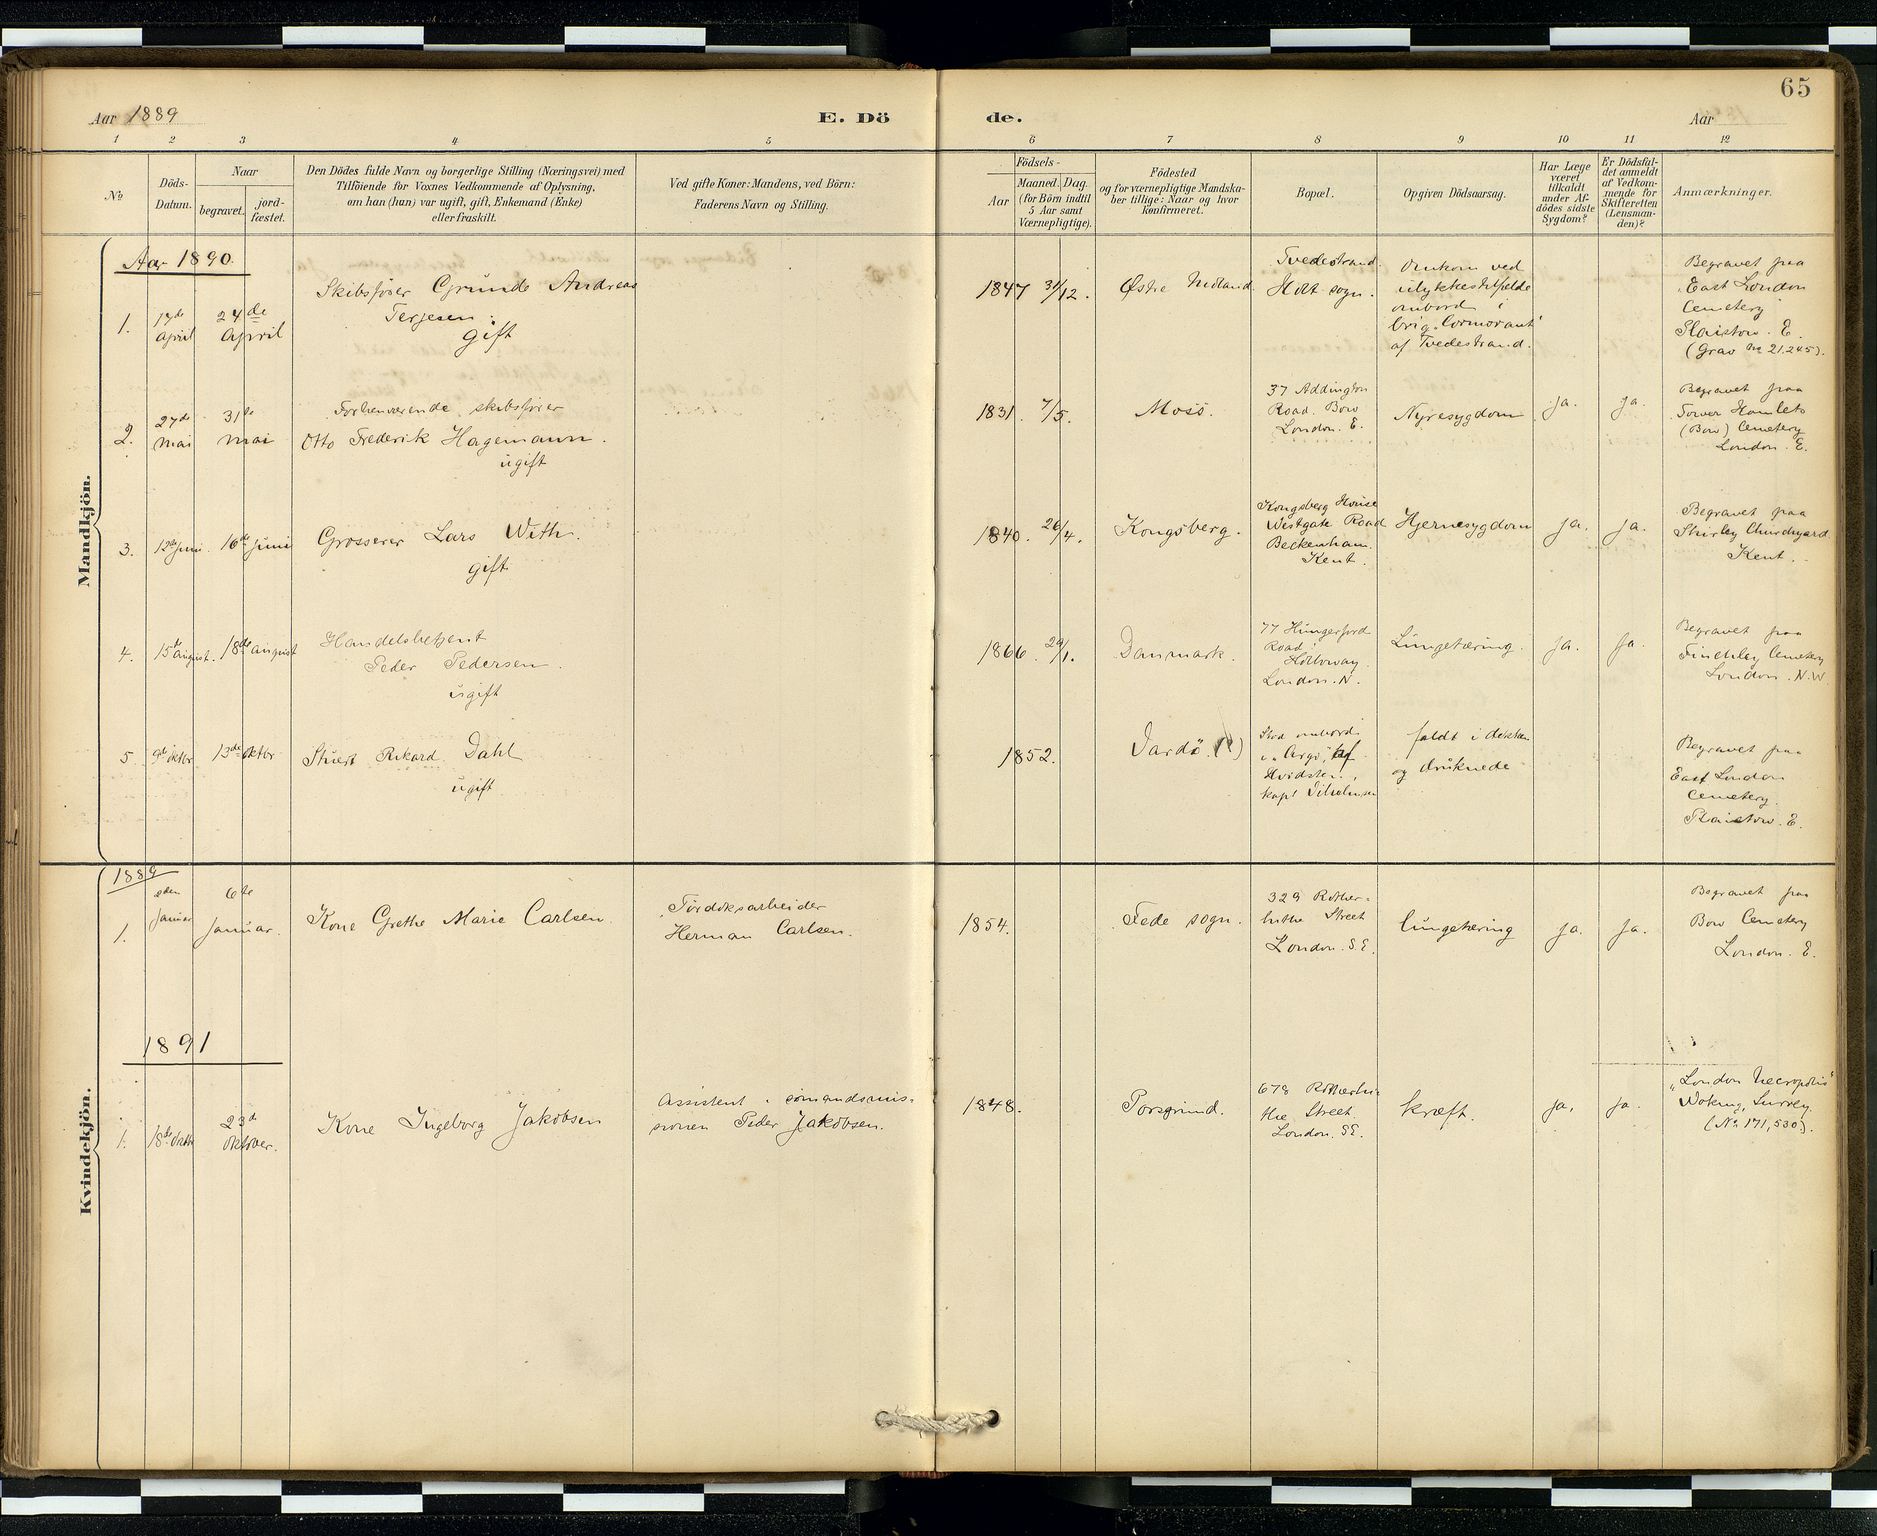 65
Aar 1889
E. Dö
de.
Aar
1 2 3 4 5 6 7 8 9 10 11 12
No
Döds-
Datum.
Naar
begravet.
jord-
fæstet.
Den Dödes fulde Navn og borgerlige Stilling (Næringsvei) med
Tilföiende for Voxnes Vedkommende af Oplysning,
om han (hun) var ugift, gift, Enkemand (Enke)
eller fraskilt.
Ved gifte Koner: Mandens, ved Börn:
Faderens Navn og Stilling.
Födsels-
Aar
Maaned. Dag.
(for Börn indtil
5 Aar samt
Værnepligtige).
Födested
og for værnepligtige Mandska-
ber tillige: Naar og hvor
konfirmeret.
Bopæl.
Opgiven Dödsaarsag.
Har Læge
været
tilkaldt
under Af-
dödes sidste
Sygdom?
Er Dödsfal-
det anmeldt
af Vedkom-
mende for
Skifteretten
(Lensman-
den)?
Anmærkninger.
Mandkjön.
Aar 1890
1.
17de
April
24de
April
Skibsfører Grunde Andreas
Terjesen.
gift
1847 31/12.
Østre
Tvedestrand.
Holt sogn.
Omkom ved
ulykkestilfælde
ombord i
brig "Cormorant"
af Tvedestrand.
Begravet paa
East London
Cemetery
Plaistow. E.
(Grav No 21.245).
2.
27de
Mai
31te
Mai
Forhenværende skibsfører
Otto Frederik Hagemann.
ugift
1831. 7/5.
Moss.
37 Addington
Road. Bow
London. E.
Nyresygdom
ja.
ja.
Begravet paa
Tower Hamlets
(Bow) Cemetery
London. E.
3.
12de juni
16de juni
Grosserer Lars With.
gift
1840. 26/4.
Kongsberg.
Kongsberg House
Westgate Road
Beckenham.
Kent.
Hjernesygdom
ja.
ja.
Begravet paa
Shirley Churchyard
Kent.
4.
15de august.
18de august
Handelsbetjent
Peder Pedersen.
ugift
1866. 29/1.
Danmark.
77 Hungerford
Road
Holloway.
London. N.
Lungetæring.
ja.
ja.
Begravet paa
Finchley Cemetery
London. N.W.
5
9de oktbr
13de oktbr
Stuert Rikard Dahl
ugift
1852.
Vardö (?)
Stod ombord
i "Argo", af
Hvidsten,
kapt Vilhelmsen
faldt i dokken
og druknede
Begravet paa
East London
Cemetery.
Plaistow. E.
Kvindekjön.
1889
1.
2den
Januar
6te
Januar.
Kone Grethe Marie Carlsen.
Tørdoksarbeider
Herman Carlsen.
1854.
Fede sogn.
329 Rother-
hithe Street
London. S.E.
lungetæring
ja.
ja.
Begravet paa
Bow Cemetery
London. E.
1891
1.
18de oktbr
23d
oktober.
Kone Ingeborg Jakobsen
Assistent i sømandsmis-
sionen Peder Jakobsen.
1848.
Porsgrund.
678 Rotherhi-
the Street.
London. S.E.
kræft.
ja.
ja.
"London Necropolis"
Woking, Surrey.
(No 171,530).